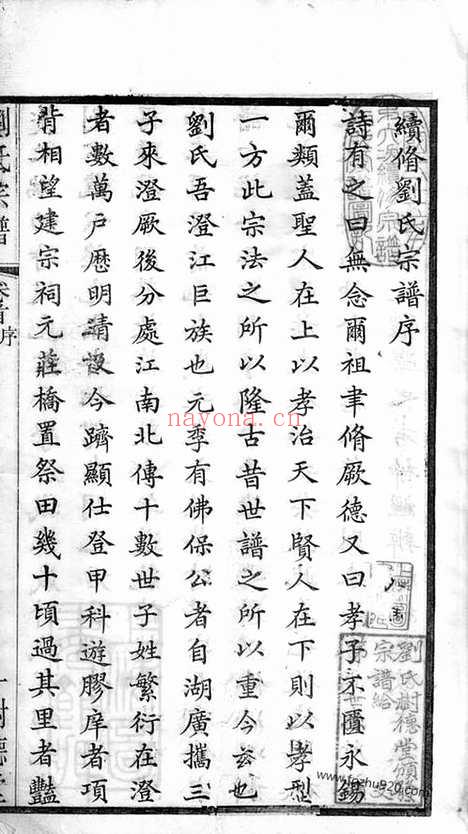 續脩劉氏宗譜序
詩有之曰無念爾祖聿脩厥德又曰孝子不匱永錫
爾類蓋聖人在上以孝治天下賢人在下則以孝型
一方此宗法之所以隆古昔世譜之所以重今茲也
劉氏吾澄江巨族也元季有佛保公者自湖廣攜三
子來澄厥後分處江南北傳十數世子姓繁衍在澄
者數萬戶歷明清役今躋顯仕登甲科遊膠庠者項
背相望建宗祠元莊橋置祭田幾十頃過其里者豔
劉氏宗譜
卷首序
一
樹德堂
劉氏樹德堂頒
宗譜給
nayona.cn